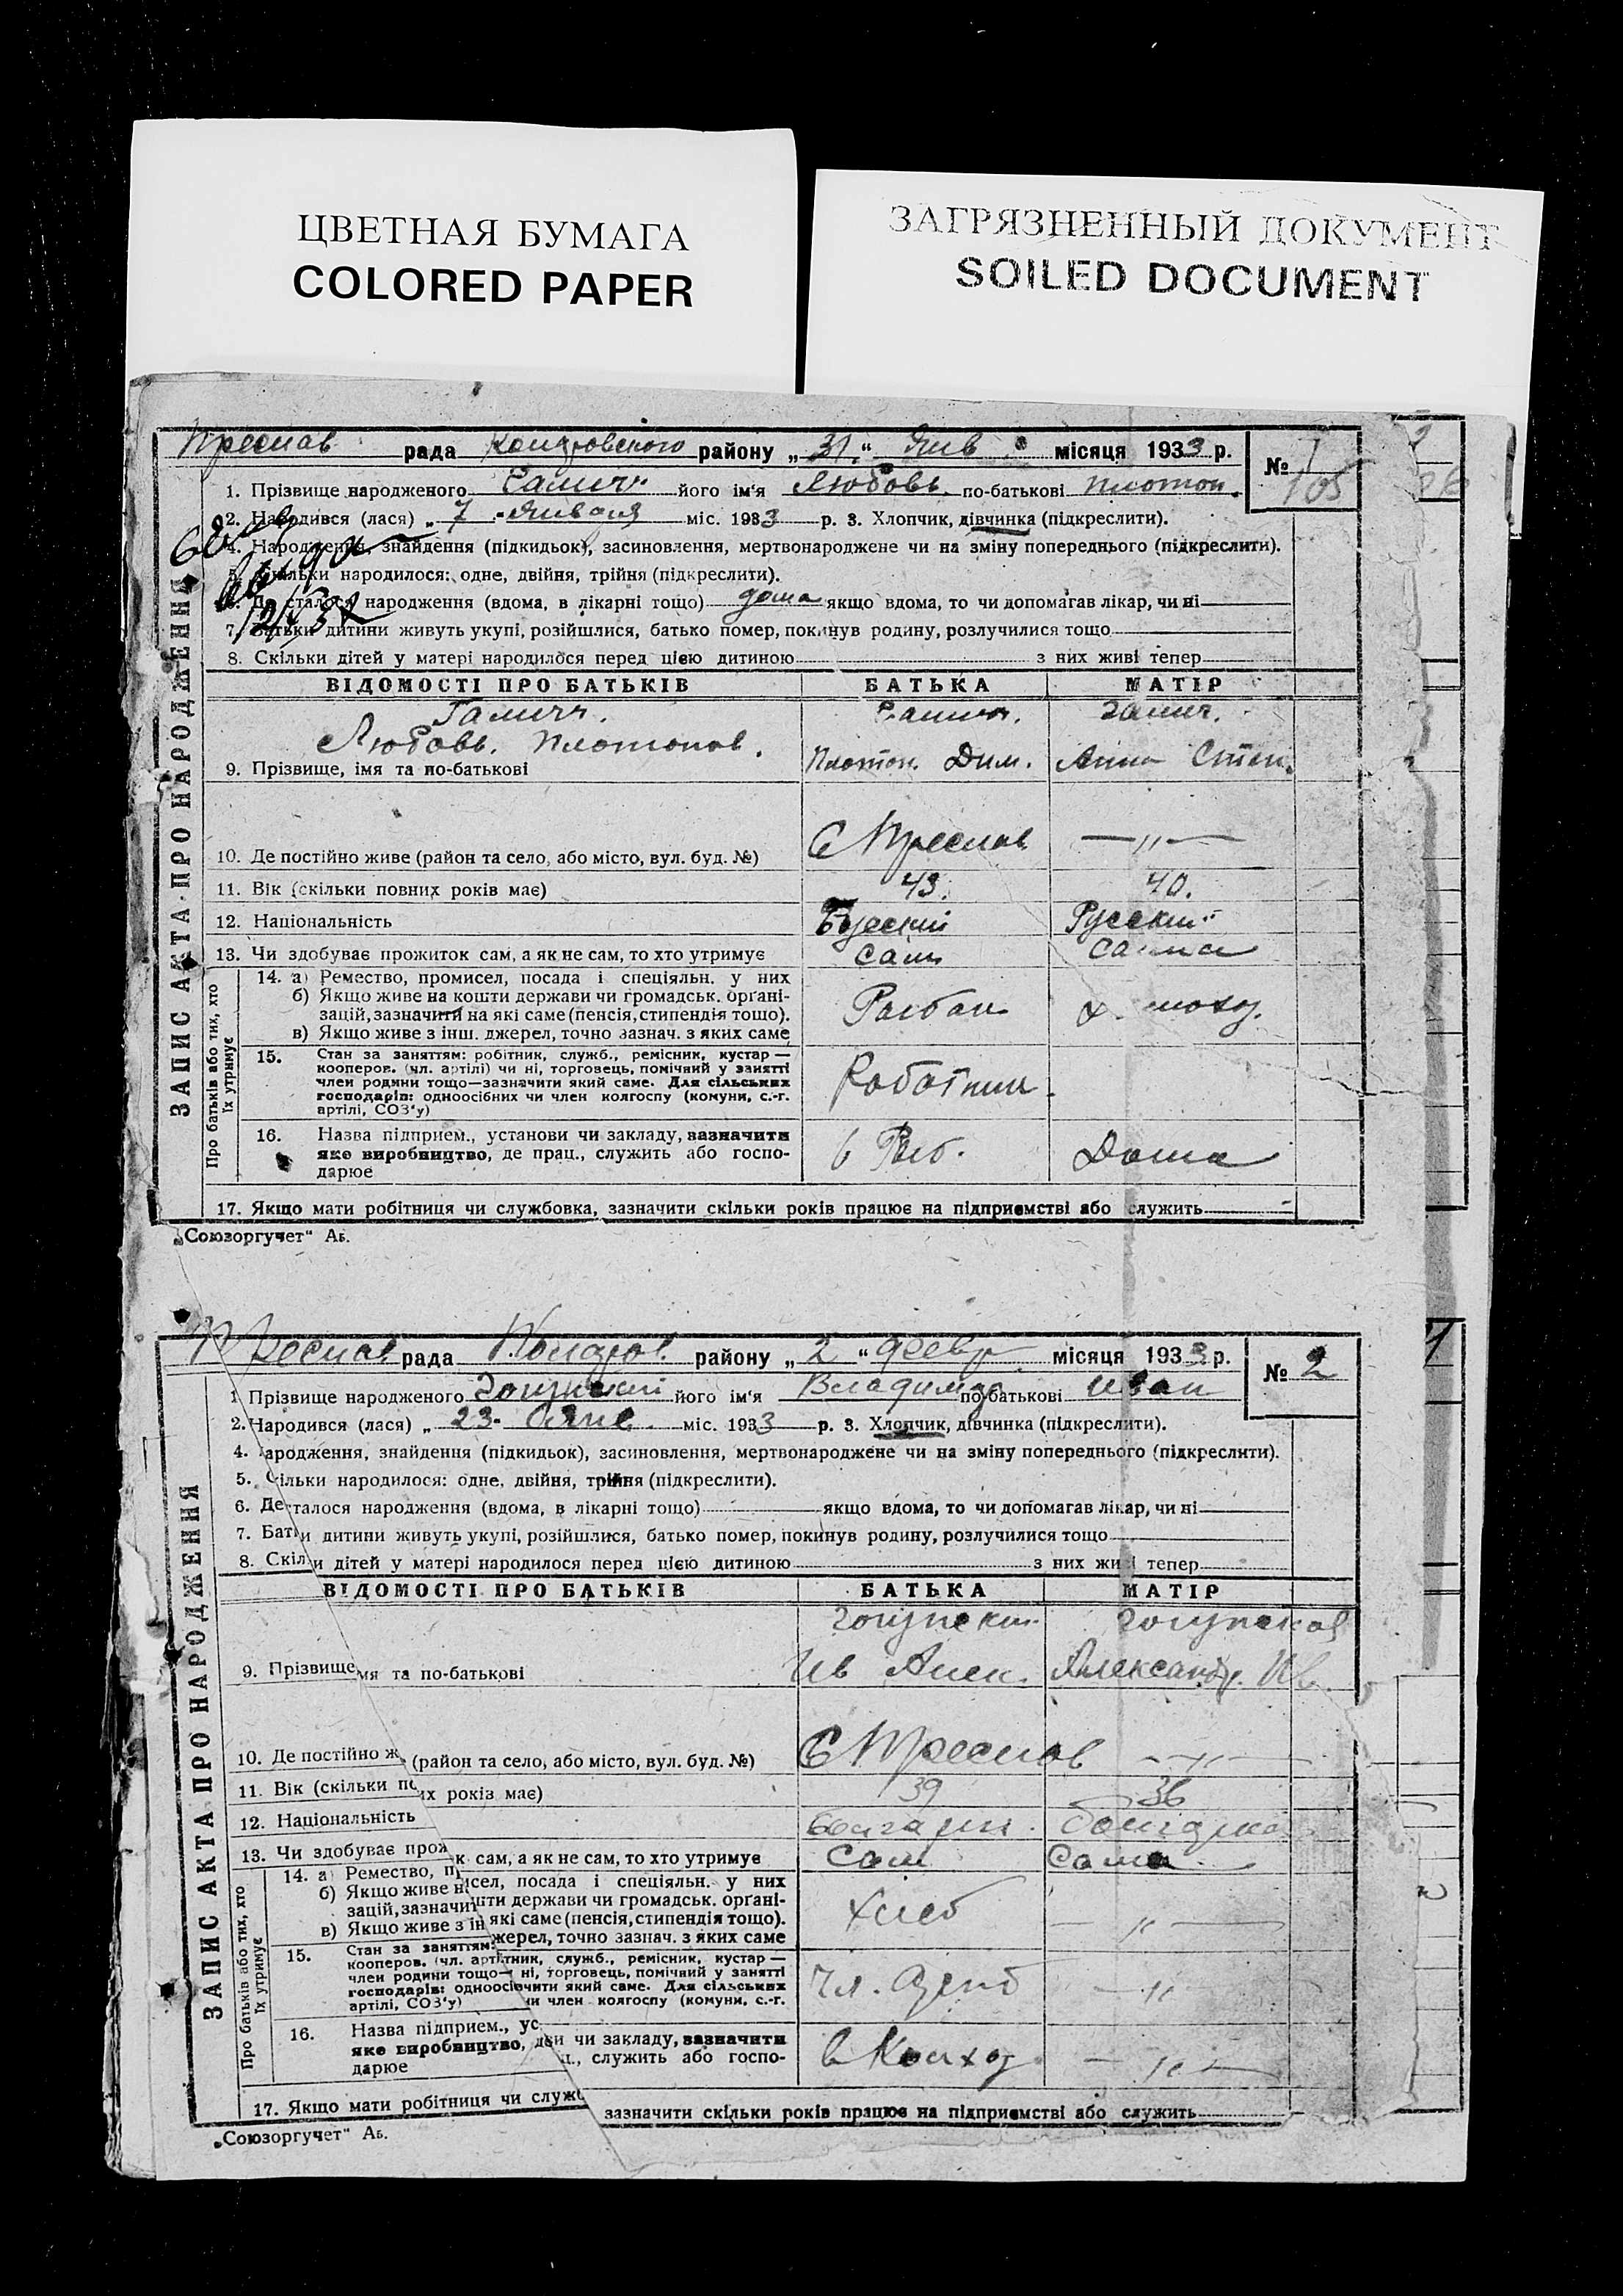 ЦВЕТНАЯ БУМАГА
COLORED PAPER
ЗАГРЯЗНЕННЫЙ ДОКУМЕНТ
SOILED DOCUMENT
Преслав рада району „31.“ Янв місяця 1933 р.
№ 1
105
1. Прізвище народженого Галич його ім'я Любовь по-батькові Плотон.
2. Народився (лася) „7 Января міс. 1933 р. 3. Хлопчик, дівчинка (підкреслити).
4. Народження, знайдення (підкидьок), засиновлення, мертвонароджене чи на зміну попереднього (підкреслити).
5. Скільки народилося: одне, двійня, трійня (підкреслити).
6. Де сталося народження (вдома, в лікарні тощо) дома якщо вдома, то чи допомагав лікар, чи ні
7. Батьки дитини живуть укупі, розійшлися, батько помер, покинув родину, розлучилися тощо
8. Скільки дітей у матері народилося перед цією дитиною з них живі тепер
ЗАПИС АКТА ПРО НАРОДЖЕННЯ
ВІДОМОСТІ ПРО БАТЬКІВ БАТЬКА МАТІР
Галич. Галич. Галич.
Любовь. Плотонов.
9. Прізвище, імя та по-батькові Плотон. Дим. Анна Степ.
10. Де постійно живе (район та село, або місто, вул. буд. №) С Преслав —"—
11. Вік (скільки повних років має) 43. 40.
12. Національність Русский Русский
13. Чи здобуває прожиток сам, а як не сам, то хто утримує Сам Сама
Про батьків або тих, хто їх утримує
14. а) Ремество, промисел, посада і спеціяльн. у них
б) Якщо живе на кошти держави чи громадськ. органі-
зацій, зазначити на які саме (пенсія, стипендія тощо).
в) Якщо живе з інш. джерел, точно зазнач. з яких саме
15. Стан за заняттям: робітник, служб., ремісник, кустар —
кооперов. (чл. артілі) чи ні, торговець, помічний у занятті
член родини тощо—зазначити який саме. Для сільських
господарів: одноосібних чи член колгоспу (комуни, с.-г.
артілі, СОЗ'у)
Работник
16. Назва підприєм., установи чи закладу, зазначити
яке виробництво, де прац., служить або госпо-
дарює
Дома
17. Якщо мати робітниця чи службовка, зазначити скільки років працює на підприємстві або служить
„Союзоргучет“ Аб.
Преслав рада району „2“ февр місяця 1933 р.
№ 2
1 Прізвище народженого його ім'я Владимир по-батькові Иван
2. Народився (лася) „23- Янв. міс. 1933 р. 3. Хлопчик, дівчинка (підкреслити).
4. ародження, знайдення (підкидьок), засиновлення, мертвонароджене чи на зміну попереднього (підкреслити).
5. Скільки народилося: одне, двійня, трійня (підкреслити).
6. Де сталося народження (вдома, в лікарні тощо) якщо вдома, то чи допомагав лікар, чи ні
7. Батьки дитини живуть укупі, розійшлися, батько помер, покинув родину, розлучилися тощо
8. Скільки дітей у матері народилося перед цією дитиною з них живі тепер
ЗАПИС АКТА ПРО НАРОДЖЕННЯ
ВІДОМОСТІ ПРО БАТЬКІВ БАТЬКА МАТІР
9. Прізвище мя та по-батькові Ив Алек. Александр. Ив.
10. Де постійно ж (район та село, або місто, вул. буд. №) С Преслав —"—
11. Вік (скільки по их років має) 39 36
12. Національність болгарин. болгарка
13. Чи здобуває прож к сам, а як не сам, то хто утримує Сам Сама
Про батьків або тих, хто їх утримує
14. а) Ремество, п исел, посада і спеціяльн. у них
б) Якщо живе н шти держави чи громадськ. органі-
зацій, зазначит які саме (пенсія, стипендія тощо).
в) Якщо живе з ін жерел, точно зазнач. з яких саме
Хлеб —"—
15. Стан за заняттям: тник, служб., ремісник, кустар —
кооперов. (чл. арті ні, торговець, помічний у занятті
член родини тощо— чити який саме. Для сільських
господарів: одноосі чи член колгоспу (комуни, с.-г.
артілі, СОЗ'у)
Чл. —"—
16. Назва підприєм., ус
яке виробництво, де и чи закладу, зазначити
дарює ц., служить або госпо-
в Колхоз —"—
17. Якщо мати робітниця чи служб зазначити скільки років працює на підприємстві або служить
„Союзоргучет“ Аб.